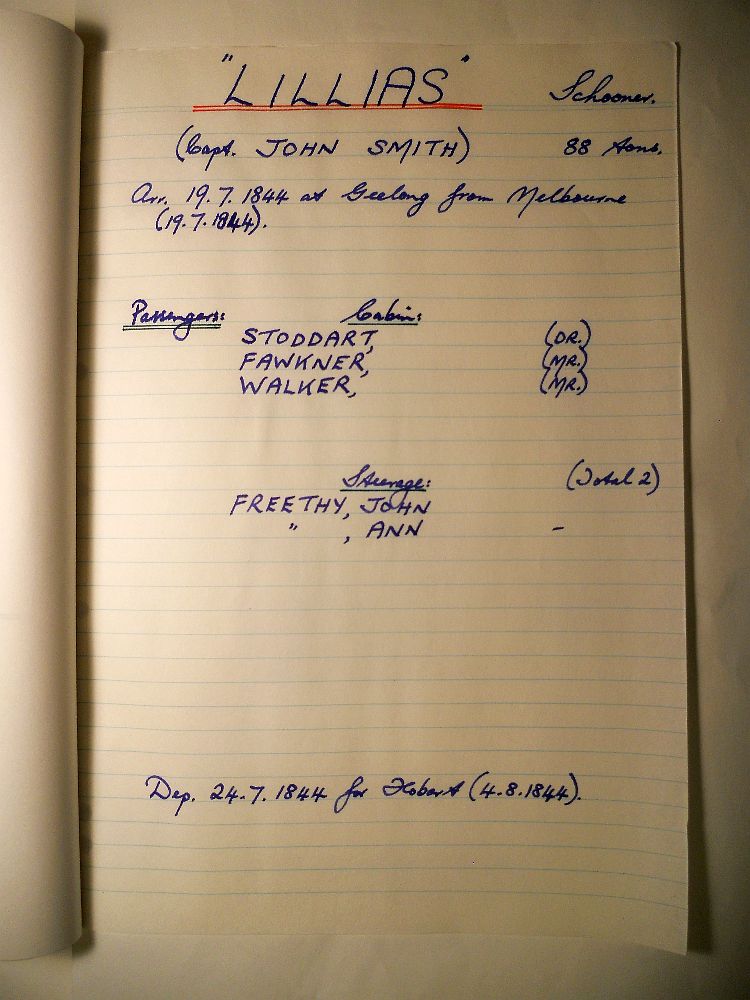 "LILLIAS" Schooner.
(Capt. JOHN SMITH) 88 tons.
Arr. 19.7.1844 at Geelong from Melbourne
(19.7.1844).
Passengers: Cabin:
STODDART, (DR.)
FAWKNER, (MR.)
WALKER, (MR.)
Steerage: (Total 2)
FREETHY, JOHN
" , ANN -
Dep. 24.7.1844 for Hobart (4.8.1844).